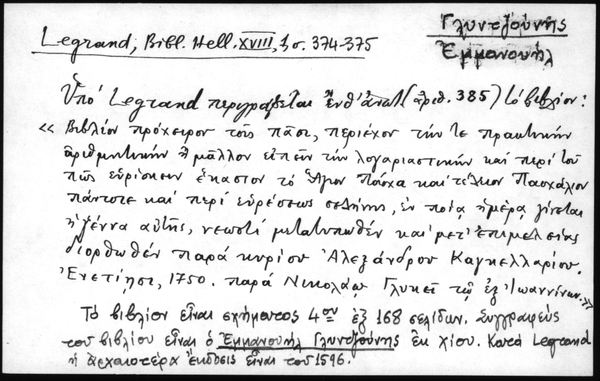 Γλυντζούνης
Ἐμμανουήλ
Legrand, Bibl. Hell. XVIII, 1, σ. 374-375
Ὑπὸ Legrand περιγράφεται ἐνθ' ἀνωτ. (ἀριθ. 385) τὸ βιβλίον:
« Βιβλίον πρόχειρον τοῖς πᾶσι, περιέχον τήν τε πρακτικὴν
ἀριθμητικὴν ἢ μᾶλλον εἰπεῖν τὴν λογαριαστικὴν καὶ περὶ τοῦ
πῶς εὑρίσκειν ἕκαστον τὸ Ἅγιον Πάσχα καὶ τέλειον Πασχάλιον
πάντοτε καὶ περὶ εὑρέσεως σελήνης, ἐν ποίᾳ ἡμέρᾳ γίνεται
ἡ γέννα αὐτῆς, νεωστὶ μετατυπωθὲν καὶ μετ' ἐπιμελείας
διορθωθὲν παρὰ κυρίου Ἀλεξάνδρου Καγκελλαρίου.
Ἐνετίησι, 1750. παρὰ Νικολάῳ Γλυκεῖ τῷ ἐξ Ἰωαννίνων.»
Τὸ βιβλίον εἶναι σχήματος 4ου ἐξ 168 σελίδων. Συγγραφεὺς
τοῦ βιβλίου εἶναι ὁ Ἐμμανουὴλ Γλυντζούνης ἐκ Χίου. Κατὰ Legrand
ἡ ἀρχαιοτέρα ἔκδοσις εἶναι τοῦ 1596.